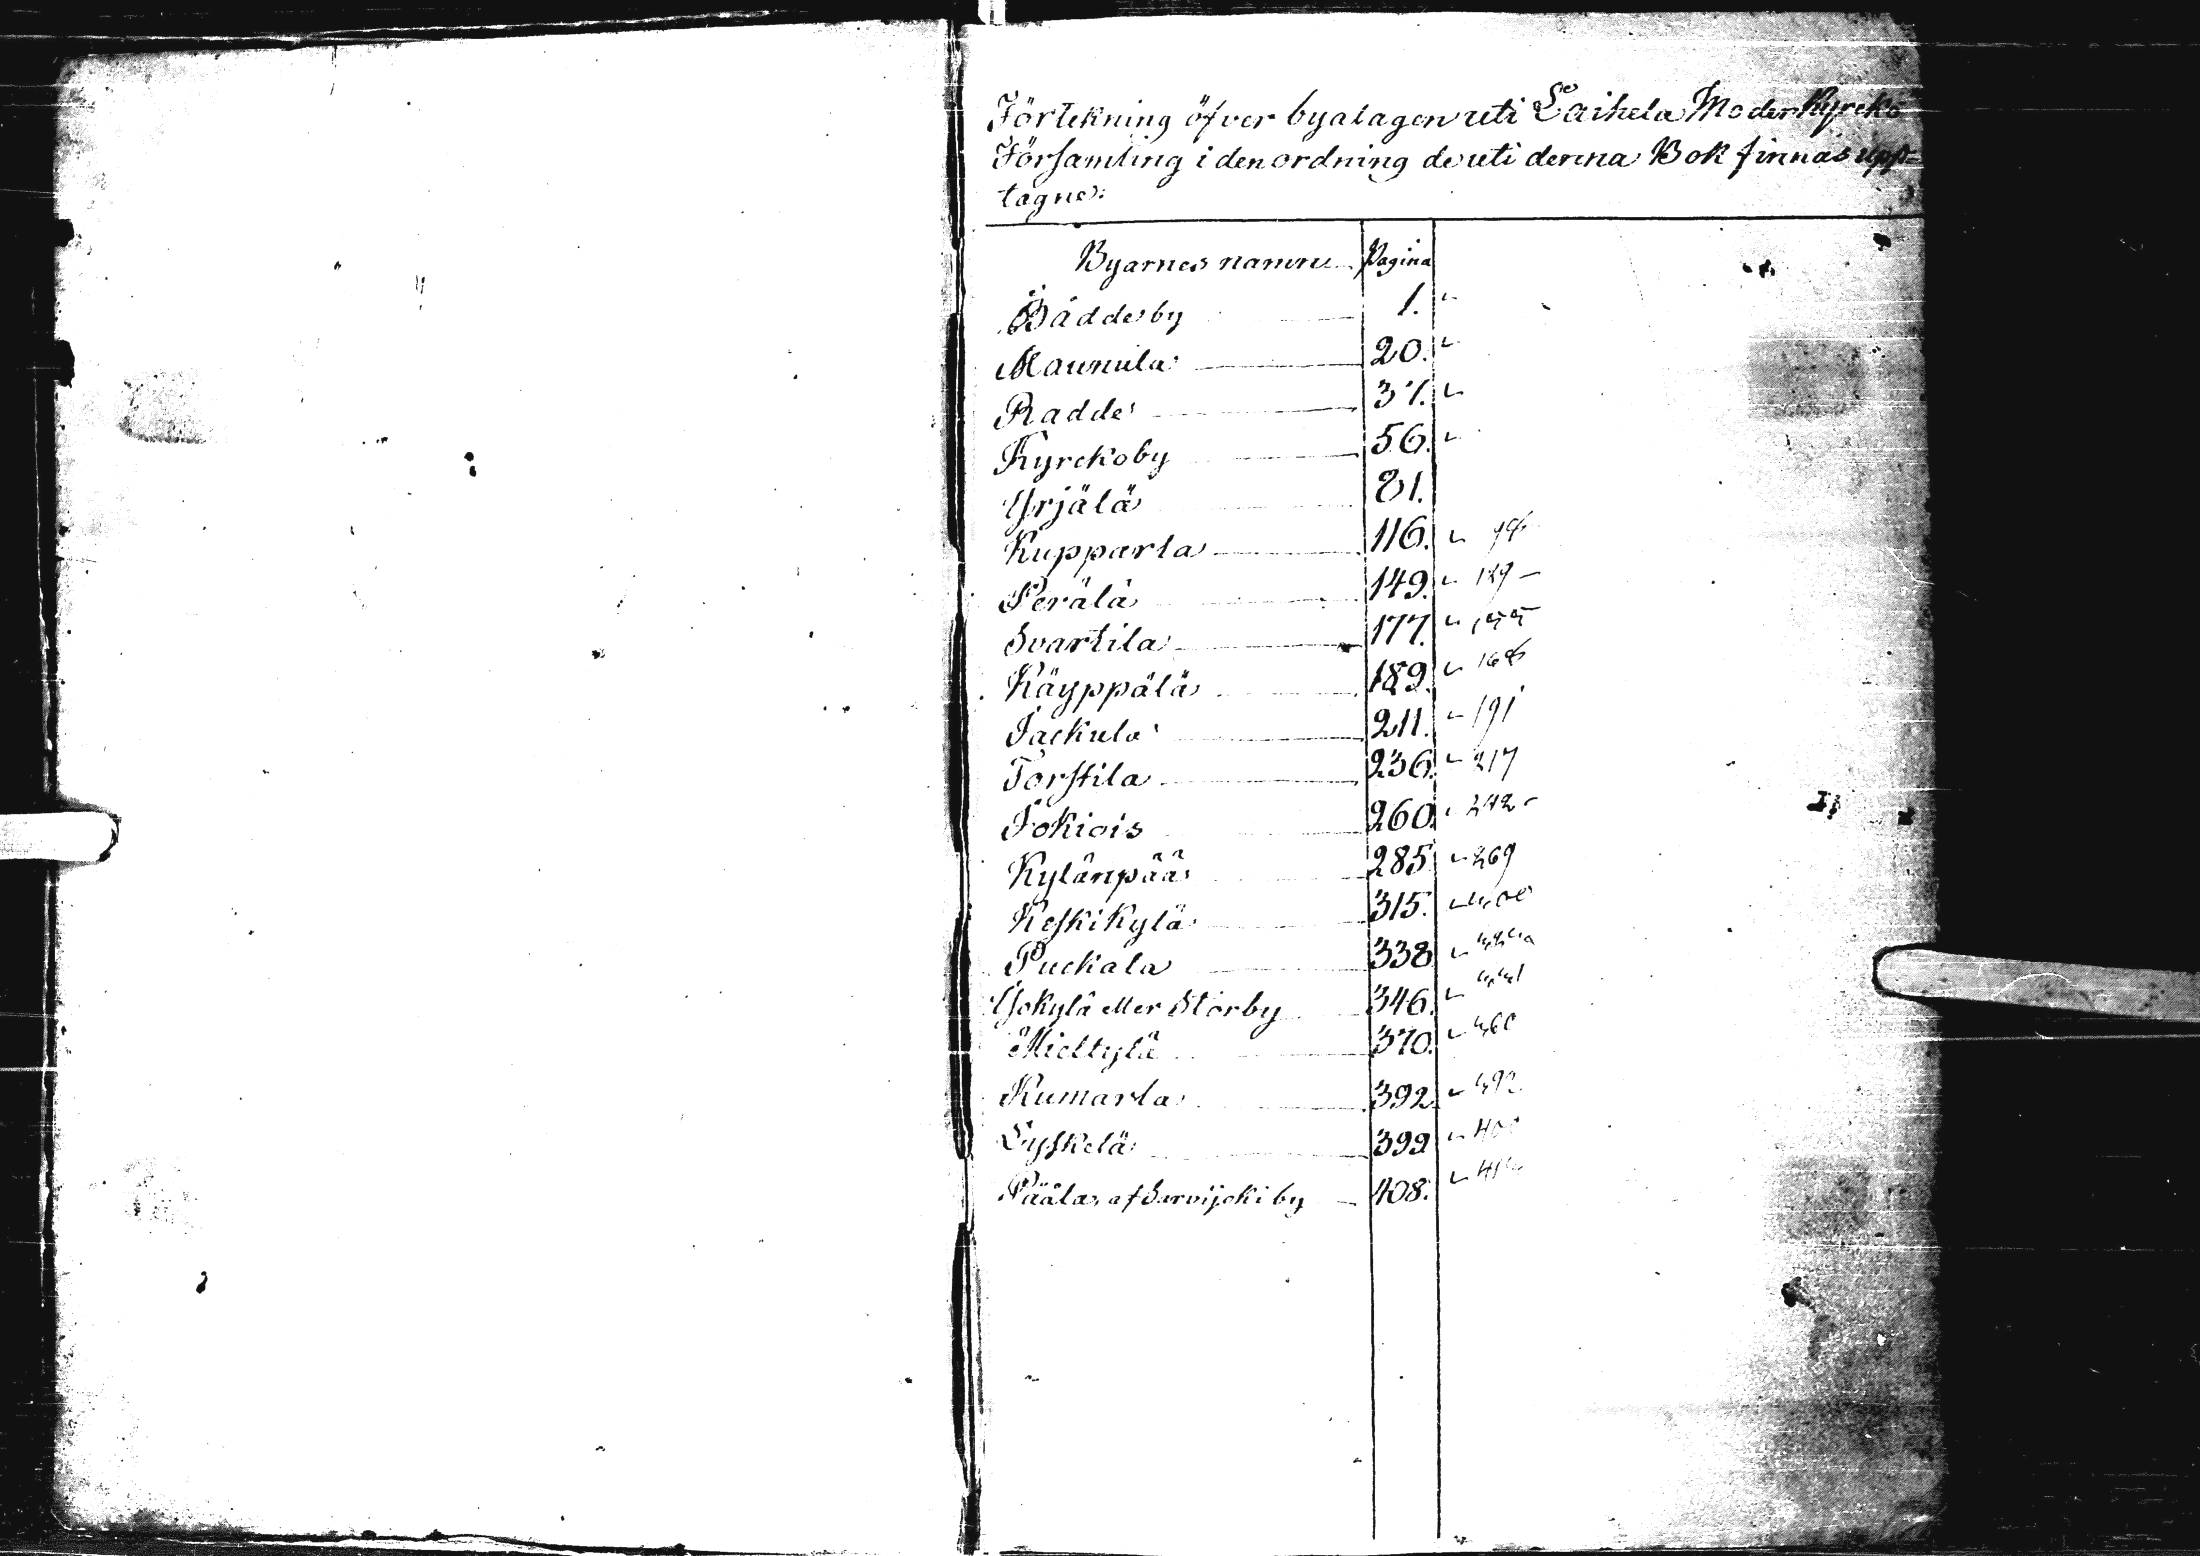 Förtekning öfver byalagen uti Laihela Moder Kyrcko
Församling i den ordning de uti denna Bok finnas upp-
tagne:
Byarnes namn Pagina
Bådde by 1.
Maunula 20.
Radde 37.
Kyrckoby 56.
Yrjälä 81.
Kupparla 116.
Perälä 149. 129
Svartila 177.
Käyppälä 189.
Jackula 211. 191
Torstila 236. 217
Jokiois 260. 242
Kylänpää 285. 269
Keskikylä 315.
Puckala 338
Yokylä eller Storby 346.
Mieltylä 370. 360
Kumarla 392. 392
Lyskelä 399
Päälä, af Sarvijoki by 408.